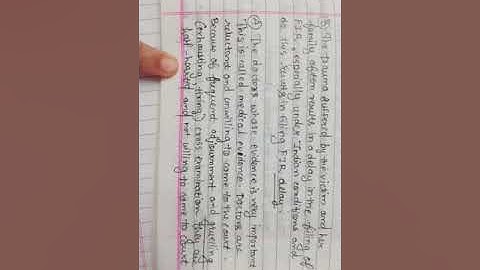 3. The Trauma suffered by the victim and her
family often results in a delay in the filing of
FIR, especially under Indian conditions and
do this results in filing FIR delay.
(4) The doctors whose evidence is very important
This is called medical evidence. Doctors are
reluctant and unwilling to come to the court.
Because of frequent adjournment and gruelling
(exhausting, tiring) cross examination. They are
half-hearted and not willing to come to court